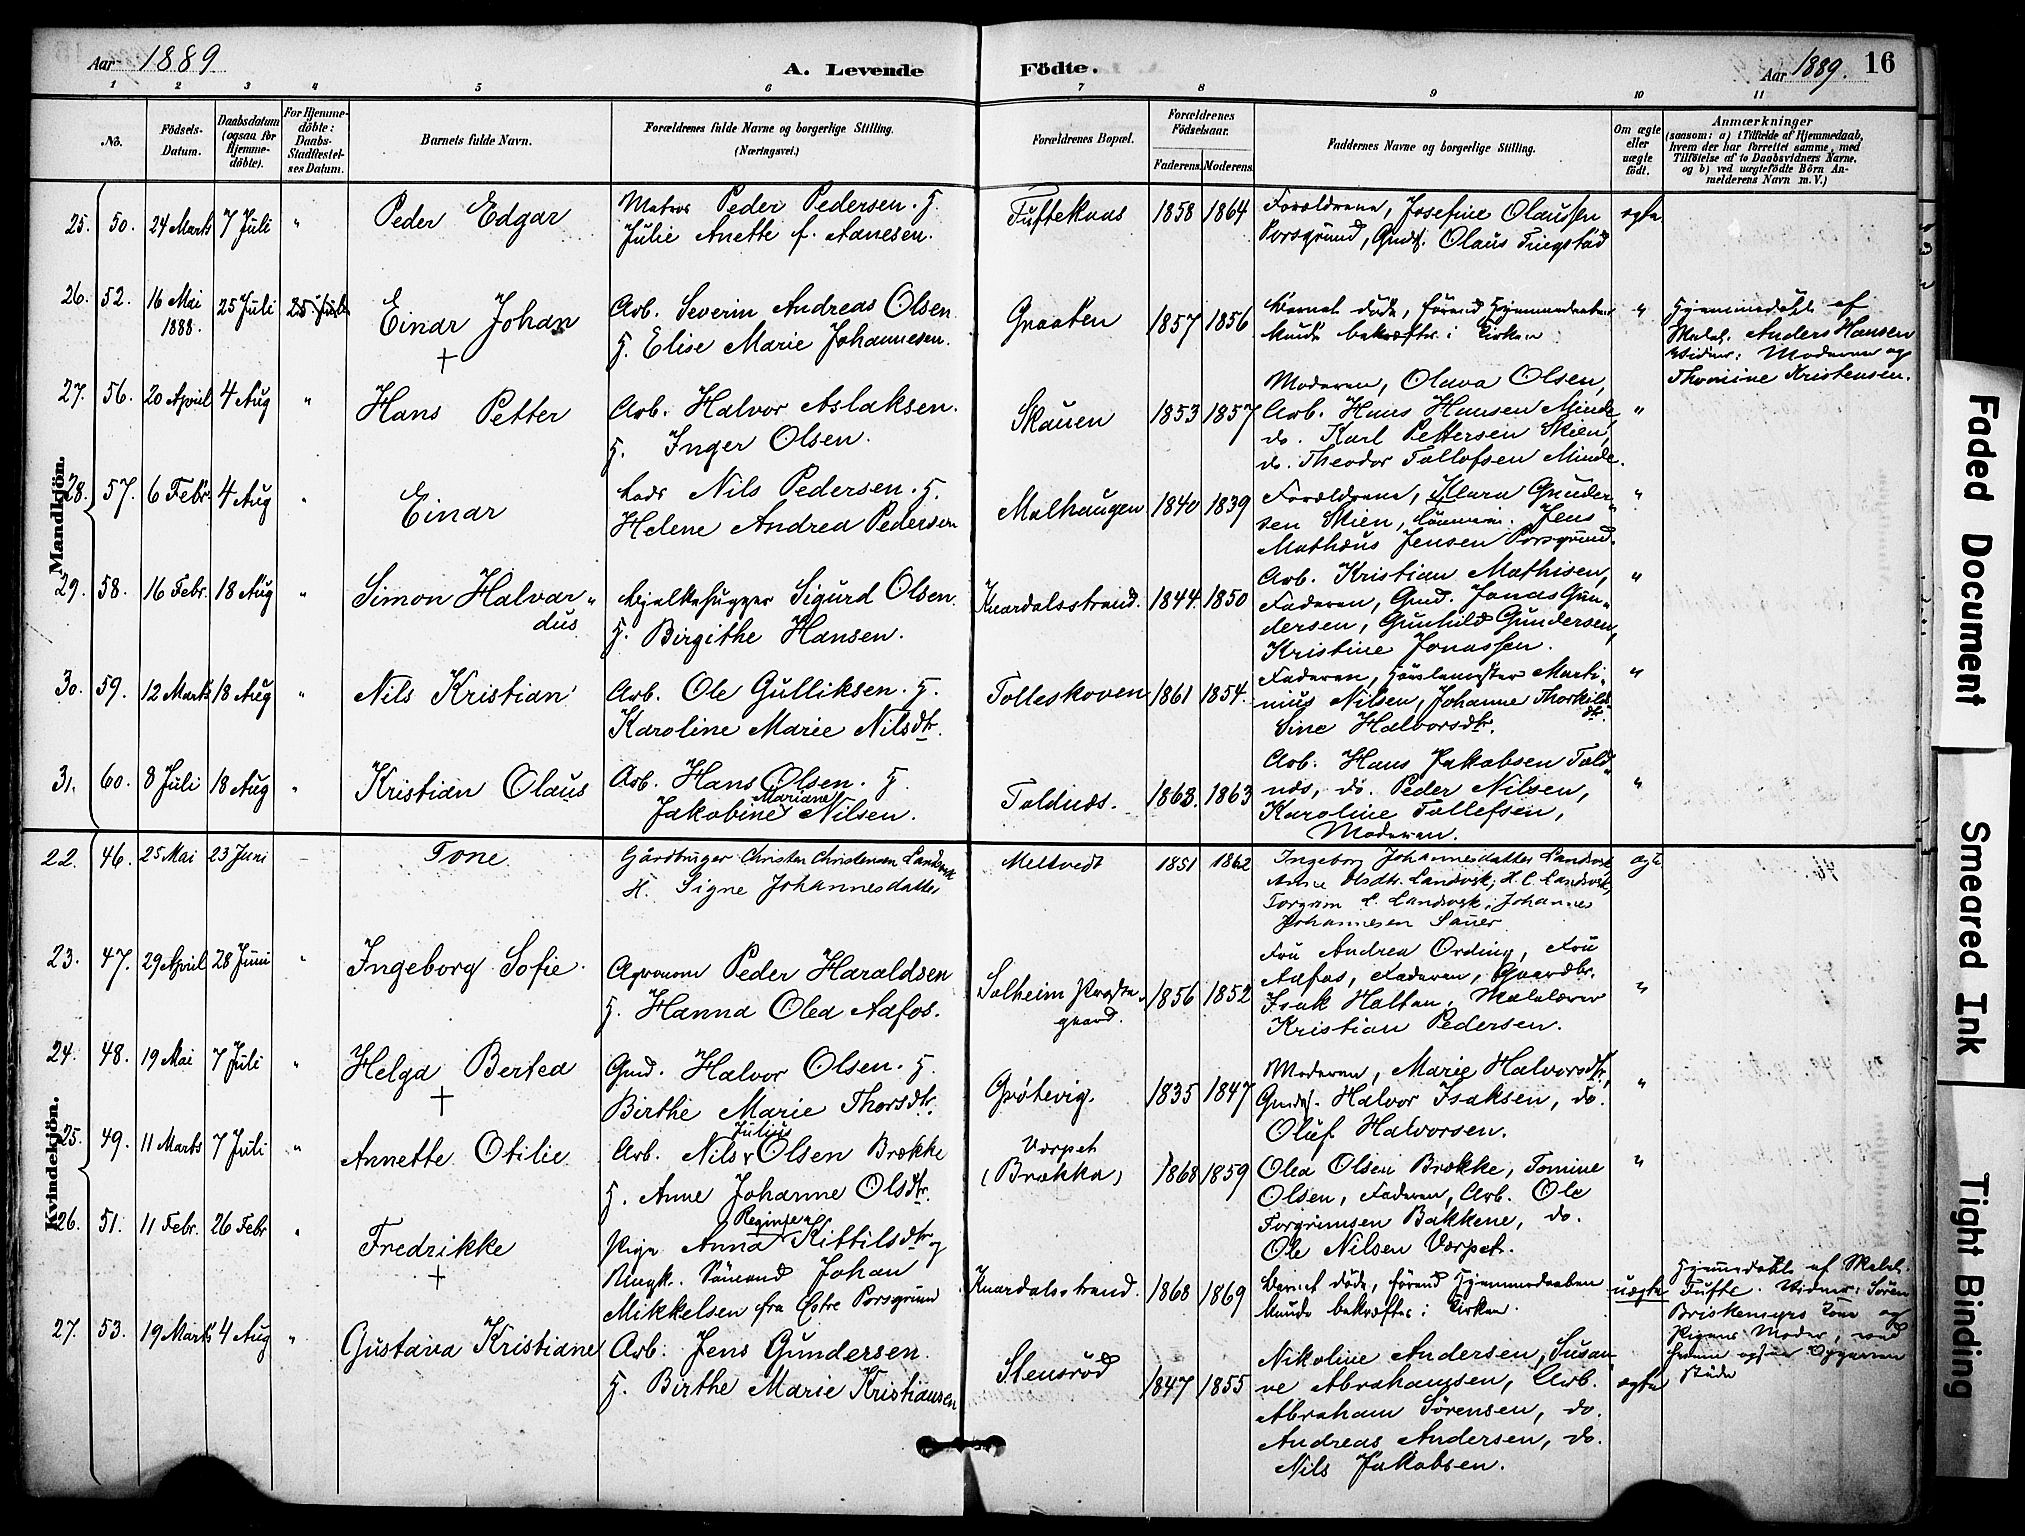 Aar 1889
A. Levende Födte.
Aar 1889. 16
1 2 3 4 5 6 7 8 9 10 11
No.
Födsels-Datum.
Daabsdatum (ogsaa for Hjemme-döbte).
For Hjemme-döbte: Daabs-Stadfæstel-ses Datum.
Barnets fulde Navn.
Forældrenes fulde Navne og borgerlige Stilling.
(Næringsvei.)
Forældrenes Bopæl.
Forældrenes Födselsaar.
Faderens. Moderens.
Faddernes Navne og borgerlige Stilling.
Om ægte eller uægte födt.
Anmærkninger
(saasom: a) i Tilfælde af Hjemmedaab,
hvem der har forrettet samme, med
Tilföielse af to Daabsvidners Navne,
og b) ved uægtefödte Börn An-
melderens Navn m. V.)
Mandkjön.
25. 50. 24 Marts 7 Juli " Peder Edgar
Matros Peder Pedersen. H.
Julie Anette f. Aanesen.
Tuftekaas 1858 1864
Forældrene, Josefine Olaussen
Porsgrund, Gmdsf. Olaus Tingstad
ægte
26. 52. 16 Mai 1888. 25 Juli 25 Juli Einar Johan +
Arb. Severin Andreas Olsen
H. Elise Marie Johannesen.
Graaten 1857 1856
Barnet døde, førend Hjemmedaaben
kunde bekræftes i Kirken
"
Hjemmedøbt af
Skolel. Anders Hansen
Vidner: Moderen og
Thomine Kristensen.
27. 56. 20 April 4 Aug " Hans Petter
Arb. Halvor Aslaksen.
H. Inger Olsen.
Skauen 1853 1857
Moderen, Olava Olsen,
Arb. Hans Hansen Minde
do. Karl Pettersen Skien,
do. Theodor Tollofsen Minde.
"
28. 57. 6 Febr 4 Aug " Einar
Lods Nils Pedersen. H.
Helene Andrea Pedersen
Malhaugen 1840 1839
Forældrene, Klara Gunder-
sen Skien, Jens
Mathæus Jensen Porsgrund.
"
29. 58. 16 Febr. 18 Aug " Simon Halvar-
dus
Bjelkehugger Sigurd Olsen.
H. Birgithe Hansen.
Knardalsstrand. 1844. 1850
Arb. Kristian Mathisen,
Faderen, Gmd. Jonas Gun-
dersen, Gunhild Gundersen,
Kristine Jonassen.
"
30. 59. 12 Marts 18 Aug " Nils Kristian
Arb. Ole Gulliksen. H.
Karoline Marie Nilsdtr.
Tolleskoven 1861 1854.
Faderen, Marti-
nius Nilsen, Johanne Thorkilds
dtr.
Sine Halvorsdtr.
"
31. 60. 8 Juli 18 Aug " Kristian Olaus
Arb. Hans Olsen. H.
Mariane
Jakobine Nilsen.
Toldnæs. 1863. 1863
Arb. Hans Jakobsen Told-
næs, do. Peder Nilsen,
Karoline Tollefsen,
Moderen.
"
Kvindekjön.
22. 46. 25 Mai 23 Juni Tone
Gårdbruger Christen Christensen Landsverk
H. Signe Johannesdatter
Meltvedt 1851 1862
Ingeborg Johannesdatter Landsverk
Anne Olsdtr. Landsverk, H. C. Landsverk,
Torgrim C. Landsverk, Johannes
Johannesen Sauer
ægte
23. 47. 29 April 28 Juni " Ingeborg Sofie.
Agronom Peder Haraldsen
H. Hanna Olea Aafos.
Solheim Præste-
gaard. 1856 1852
Fru Andrea Ording, Fru
Aafos, Faderen, Gaardbr.
Isak Holtan, Skolelærer
Kristian Pedersen.
"
24. 48. 19 Mai 7 Juli " Helga Bertea +
Gmd. Halvor Olsen. H.
Birthe Marie Thorsdtr.
Grøtevig. 1835 1847
Moderen, Marie Halvorsdtr,
Gmdsf. Halvor Isaksen, do.
Oluf Halvorsen.
"
25. 49. 11 Marts 7 Juli " Annette Otilie
Julius
Arb. Nils Olsen Brække
H. Anne Johanne Olsdtr.
Værpet
(Brækka) 1868 1859
Olea Olsen Brække, Tomine
Olsen, Faderen, Arb. Ole
Torgrimsen Bakkene, do.
Ole Nilsen Værpet.
"
26. 51. 11 Febr. 26 Febr " Fredrikke +
Regine
Pige Anna Kittilsdtr og
Ungk. Sømand Johan
Mikkelsen fra Østre Porsgrund
Knardalsstrand. 1868 1869
Barnet døde, førend Hjemmedaaben
kunde bekræftes i Kirken.
uægte
Hjemmedøbt af Skolel.
Tufte. Vidner: Søren
Briskemyrs Kone og
Pigens Moder,
27. 53. 19 Marts 4 Aug " Gustava Kristiane
Arb. Jens Gundersen.
H. Birthe Marie Kristiansen
Stensrød 1847 1855
Nikoline Andersen, Susan-
ne Abrahamsen, Arb.
Abraham Sørensen, do.
Andreas Andersen, do.
Nils Jakobsen.
ægte
Faded Document
Smeared Ink
Tight Binding